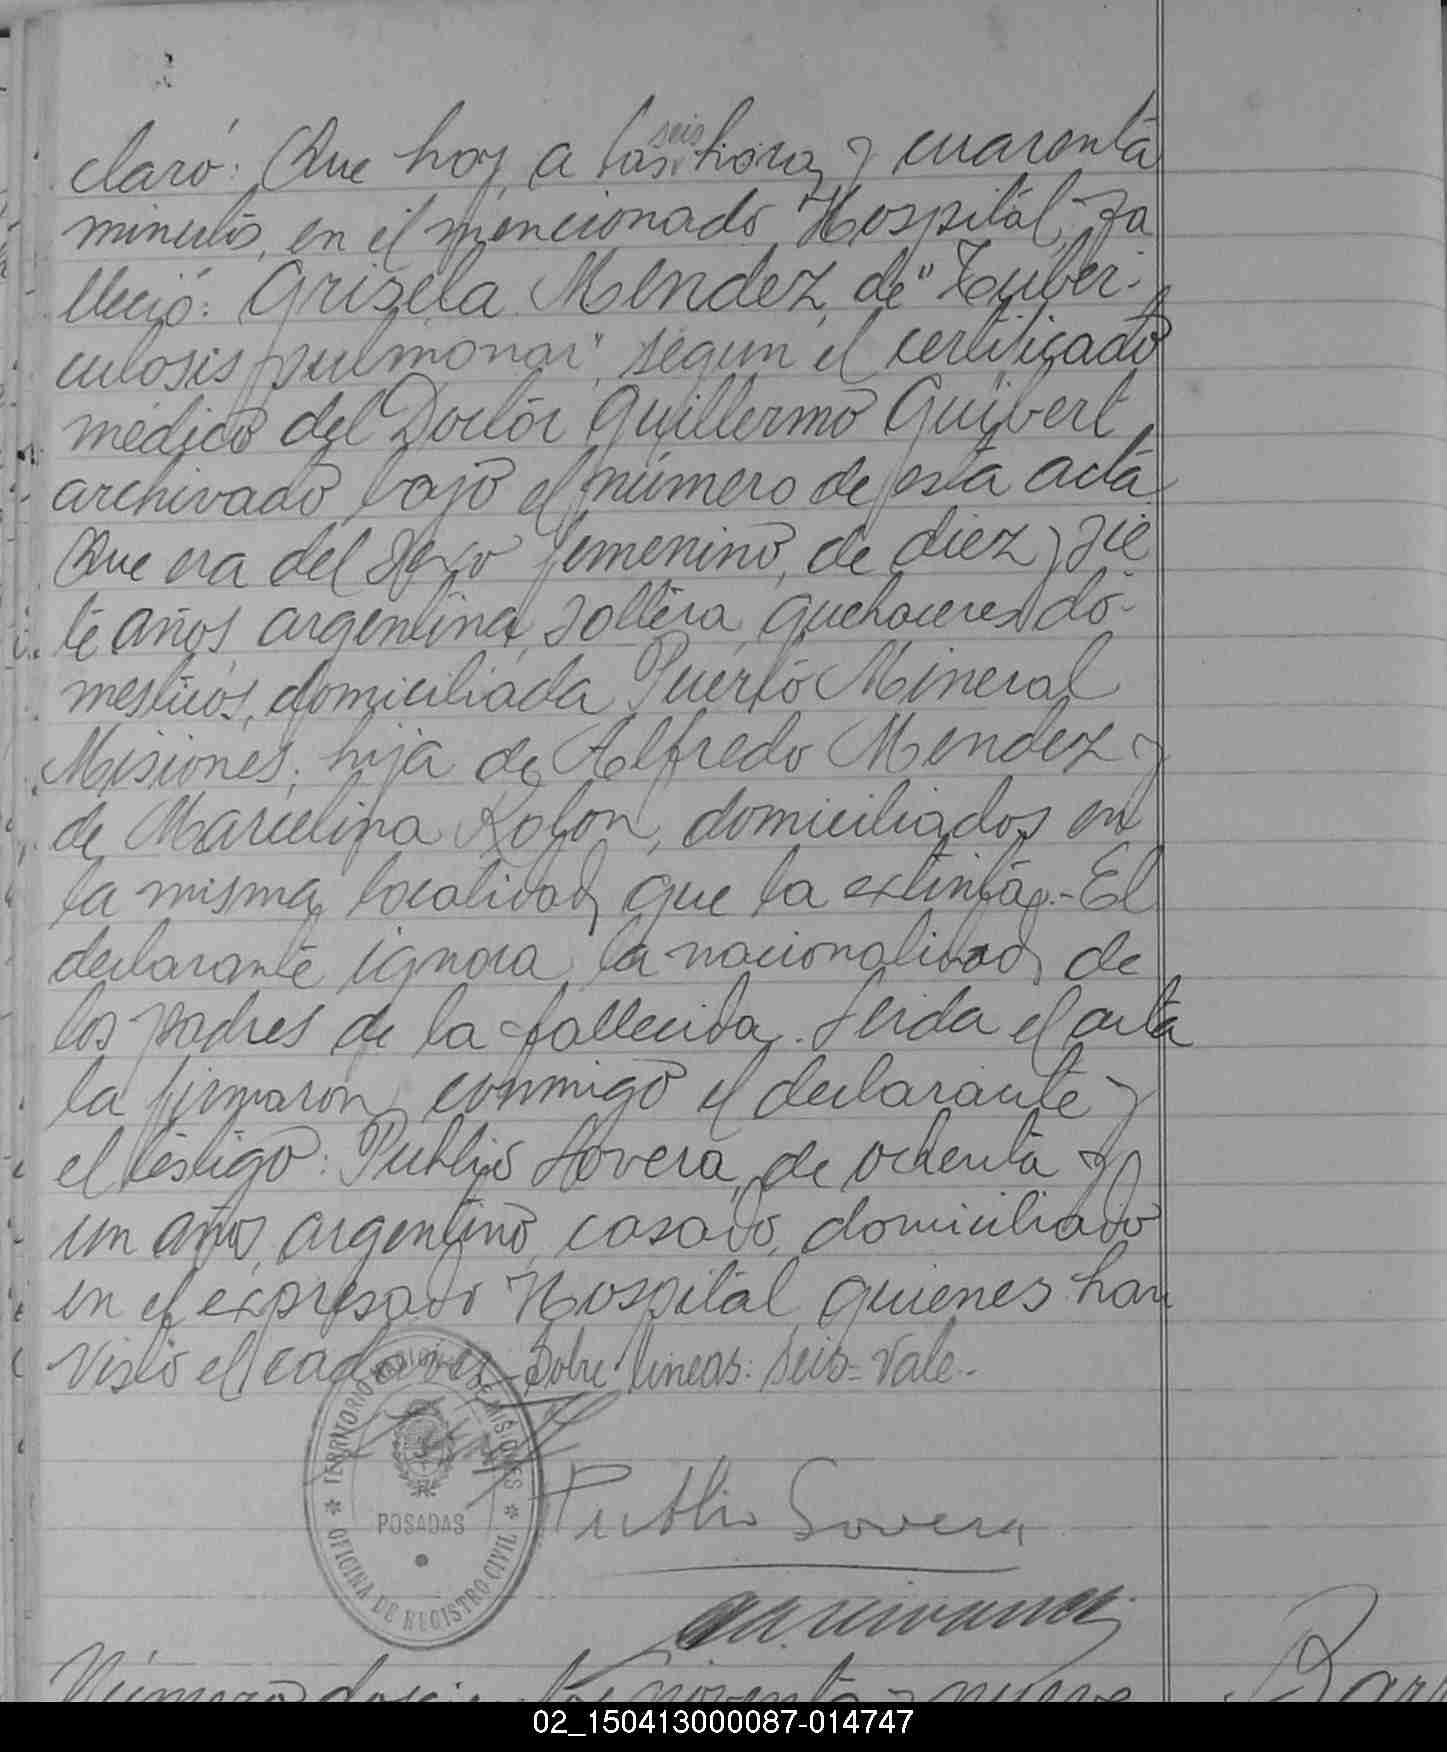 claró: Que hoy a las seis hora y cuarenta
minutos, en el mencionado Hospital, fa
lleció: Grisela Mendez, de "Tuber-
culosis pulmonar", segun el certificado
médico del Doctor Guillermo Guibert
archivado bajo el número de esta acta
Que era del sexo femenino, de diez y sie
te años, argentina, soltera, quehaceres do-
mesticos, domiciliada Puerto Mineral
Misiones, hija de Alfredo Mendez y
de Marcelina Rolon, domiciliados en
la misma localidad que la extinta.- El
declarante ignora la nacionalidad de
los padres de la fallecida. Leida el acta
la firmaron conmigo el declarante y
el testigo: Publio Lovera, de ochenta y
un años, argentino, casado, domiciliado
en el expresado Hospital quienes han
visto el cadaver.- Sobre lineas: seis= Vale.-
TERRITORIO NACIONAL DE MISIONES
POSADAS
OFICINA DE REGISTRO CIVIL
Publio Lovera
Número doscientos noventa y nueve
02_150413000087-014747